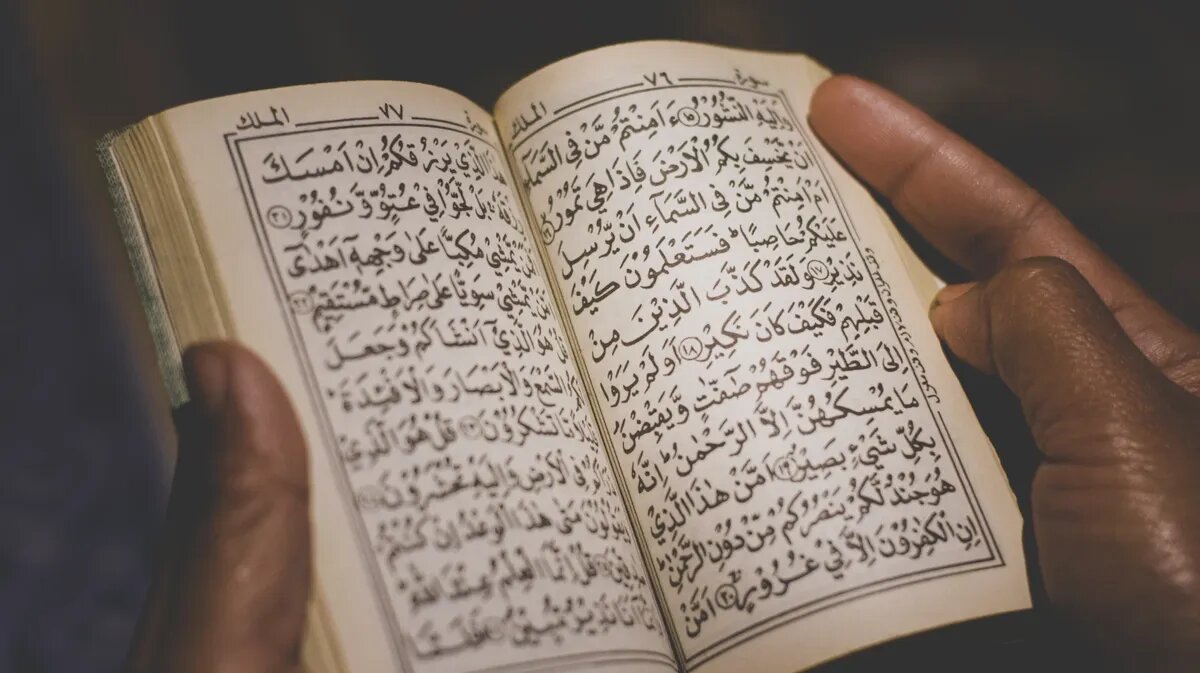 سورة ٧٦ الملك
وَاِلَيْهِ النُّشُوْرُ ١٥ ءَاَمِنْتُمْ مَّنْ فِي السَّمَآءِ
اَنْ يَّخْسِفَ بِكُمُ الْاَرْضَ فَاِذَا هِيَ تَمُوْرُ ١٦
اَمْ اَمِنْتُمْ مَّنْ فِي السَّمَآءِ اَنْ يُّرْسِلَ
عَلَيْكُمْ حَاصِبًا ؕ فَسَتَعْلَمُوْنَ كَيْفَ
نَذِيْرِ ١٧ وَلَقَدْ كَذَّبَ الَّذِيْنَ مِنْ
قَبْلِهِمْ فَكَيْفَ كَانَ نَكِيْرِ ١٨ اَوَلَمْ يَرَوْا
اِلَى الطَّيْرِ فَوْقَهُمْ صٰٓفّٰتٍ وَّيَقْبِضْنَ
مَا يُمْسِكُهُنَّ اِلَّا الرَّحْمٰنُ ؕ اِنَّهٗ
بِكُلِّ شَيْءٍ بَصِيْرٌ ١٩ اَمَّنْ هٰذَا الَّذِيْ
هُوَ جُنْدٌ لَّكُمْ يَنْصُرُكُمْ مِّنْ دُوْنِ الرَّحْمٰنِ ؕ
اِنِ الْكٰفِرُوْنَ اِلَّا فِيْ غُرُوْرٍ ٢٠ اَمَّنْ
سورة ٧٧ الملك
هٰذَا الَّذِيْ يَرْزُقُكُمْ اِنْ اَمْسَكَ
رِزْقَهٗ ۚ بَلْ لَّجُّوْا فِيْ عُتُوٍّ وَّنُفُوْرٍ ٢١
يَّمْشِيْ مُكِبًّا عَلٰى وَجْهِهٖٓ اَهْدٰٓى
يَّمْشِيْ سَوِيًّا عَلٰى صِرَاطٍ مُّسْتَقِيْمٍ ٢٢
هُوَ الَّذِيْٓ اَنْشَاَكُمْ وَجَعَلَ
السَّمْعَ وَالْاَبْصَارَ وَالْاَفْـِٕدَةَ ؕ
مَّا تَشْكُرُوْنَ ٢٣ قُلْ هُوَ الَّذِيْ
فِي الْاَرْضِ وَاِلَيْهِ تُحْشَرُوْنَ ٢٤
مَتٰى هٰذَا الْوَعْدُ اِنْ كُنْتُمْ
قُلْ اِنَّمَا الْعِلْمُ عِنْدَ اللّٰهِ
اَنَا نَذِيْرٌ مُّبِيْنٌ ٢٦ فَلَمَّا